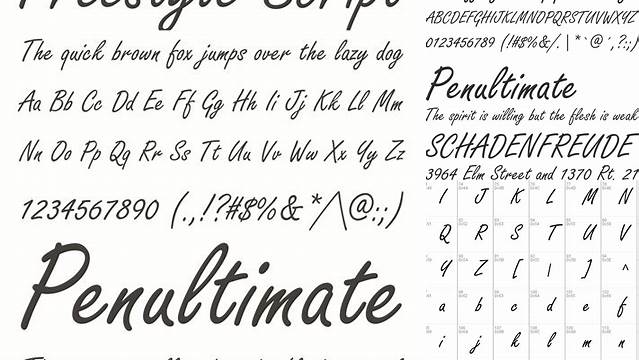 Freestyle Script
The quick brown fox jumps over the lazy dog
Aa Bb Cc Dd Ee Ff Gg Hh Ii Jj Kk Ll Mm
Nn Oo Pp Qq Rr Ss Tt Uu Vv Ww Xx Yy Zz
1234567890 (.,!?#$%&*/\@:;)
Penultimate
ABCDEFGHIJKLMNOPQRSTUVWXYZ
0123456789 (!#$%&/.|*`@´,?:;)
Penultimate
The spirit is willing but the flesh is weak
SCHADENFREUDE
3964 Elm Street and 1370 Rt. 21
I J K L M N
Q R S T U V
Y Z [ \ ] ^
a b c d e f
i j k l m n